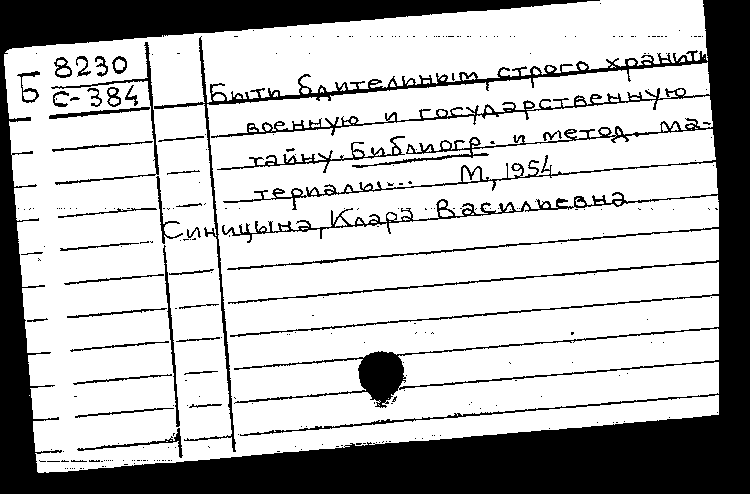 Б 8230
С-384
Быть бдительным, строго хранить
военную и государственную
тайну. Библиогр. и метод. ма-
териалы... М., 1954.
Синицына, Клара Васильевна